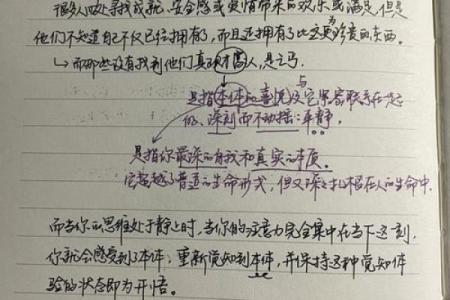 很多人四处寻找成就、安全感或爱情带来的欢乐或满足,但是
他们不知道自己不仅已经拥有了,而且还拥有了比这更为珍贵的东西。
↳ 而那些没有找到他们真正财富的人,是乞丐。
是指本体的喜悦及与它紧密联系在一起
的、深刻而不动摇的平静。
是指你最深的自我和真实的本质。
它超越了普通的生命形式,但又深深扎根在人的生命中.
而当你的思维处于静止时,当你的注意力完全集中在当下这一刻,
你就会感受到了本体,重新觉知到本体,并保持这种觉知体
验的状态即为开悟。